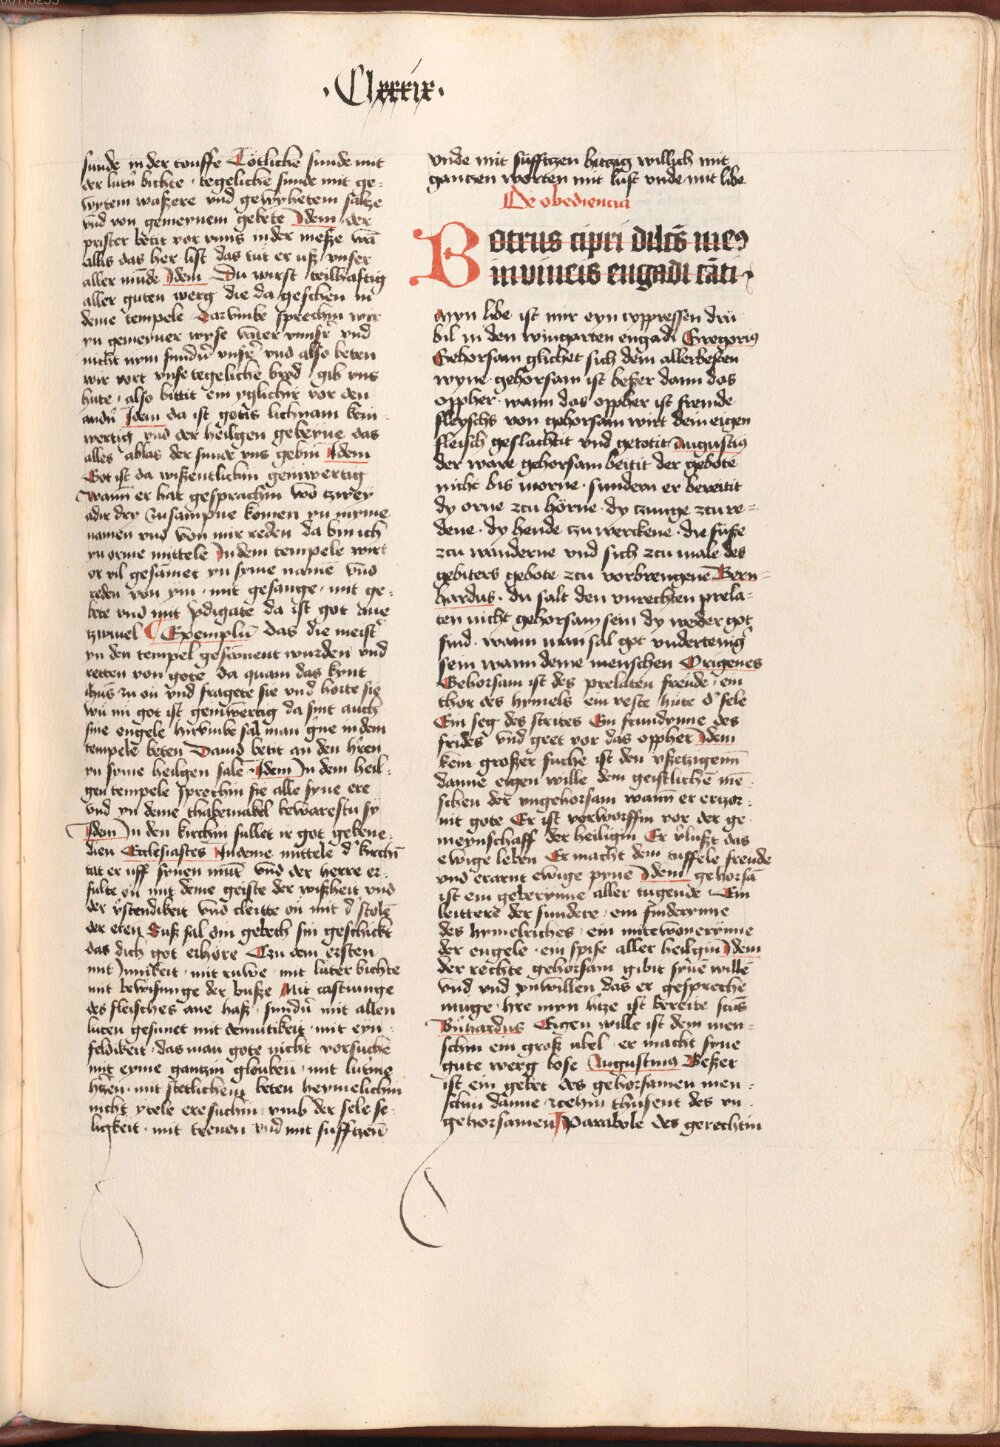 ·Clxxxix·
sunde in der touffe Tötliche sunde mit
der lutern bichte · tegeliche sunde mit ge-
wytem waßere und gewyhetem saltze
vnd von gemeynem gebete Idem der
prister betit vor vnns in der messe wan
allis das her list das tut er uß vnser
aller munde Idem Du wirst teilhaftig
aller guten werg die da geschen in
deme tempele Darumbe sprechin wir
yn gemeyner wyse vater vnnser vnd
nicht mym sundern vnser vnd also beten
wir vort vnse tegeliche brod gib vns
hute · also bittit ein yglichir vor den
andern Idem da ist gotis lichnam kein-
wertig vnd der heilgen gebeyne das
alles ablas der sunde vns gebin Idem
Got ist da wißentlichin geinwertig
Wann er hat gesprachin wo zwey
adir dry zusampne komen yn myme
namen vnd von mir reden da bin ich
yn orme mittele In dem tempele wirt
er vil gesamet yn syme namen vnd
reden von ym · mit gesange · mit ge-
bete vnd mit predigate da ist got ane
zwiuel Exemplum das die meister
yn den tempel gesament wurden vnd
retten von gote da quam das kynt
ihesus zu on vnd fragete sie vnd horte sie
wu nu got ist geinwertig da sint auch
sine engele hirumbe sal man gerne in dem
tempele beten Dauid betit an den herren
yn syme heilgen sale Idem In dem heil-
gen tempele sprechin sie alle syne ere
vnd yn deme thabernakel bewarestu sy
Idem In den kirchin sullet ir got gebene-
dien Ecclesiastes In deme mittele der kirchin
tat er uff synen munt vnd der herre er-
fulte on mit deme geiste der wißheit vnd
der verstendikeit vnd cleitte on mit der stole
der eren Suß sal din gebeth sin geschickt
das dich got erhore Czu dem ersten
mit Innikeit · mit ruwe · mit luter bichte
mit bewisunge der buße Mit castiunge
des fleisches ane haß · sundern mit allen
luten gesunet mit demutikeit · mit eyn-
feldikeit · das man gote nicht vorsuche
mit eyme gantzin glouben · mit luterme
hertzen · mit stetlichem beten heymelichin
nicht ytele ere suchin · vmb der sele se-
likeit · mit trenen vnd mit sufftzen
vnde mit sufftzen hitzig willich mit
gantzen worten mit lust vnde mit libe
De obediencia
Botrus cipri dilectus meus
in vineis engadi canti·
Myn libe ist mir eyn cyppressen dru-
bil in den wingarten engadi Gregorius
Gehorsam glichet sich dem allerbesten
wyne · gehorsam ist beßer dann das
oppher · wann das oppher ist fremde
fleyschs von gehorsam wirt dem eigen
fleisch geslachtit vnd getotit Augustinus
der ware gehorsam beitit der gebote
nicht bis morne · sundern er bereitit
dy orne zcu hörne · dy zunge zcu re-
dene · dy hende zcu werckene · die füße
zcu wanderne vnd sich zcu male des
gebiters gebote zcu vorbrengene Bern-
hardus · du salt den vnrechten prela-
ten nicht gehorsam sein dy weder got
sind · wann man sal got vndertenig
sein wann deme menschen Origenes
Gehorsam ist des prelaten freude · ein
thor des hymels ein veste hute der sele
Ein seg des strites Ein frundynne des
frides vnd geet vor das oppher Idem
kein großer suche ist den vßetzigenn
danne eigen wille dem geistlichen men-
schen der vngehorsam wann er erzor-
nit gote Er ist vorworffin von der ge-
meynschaff der heiligin Er verlußt das
ewige leben Er macht dem tuffele freude
vnd erarnt ewige pyne Idem gehorsam
ist ein geberynne aller tugende Ein
leittere der sundere · ein finderynne
des hymelriches · ein mitewonerynne
der engele · ein spise aller heilgin Idem
der rechte gehorsam gibit synen willen
vnd vnd vnwillen das er gespreche
muge · herre myn hertze ist bereite
Bernhardus Eigen wille ist dem men-
schin ein groß ubel · er macht syne
gute werg bose Augustinus Beßer
ist ein gebet des gehorsamen men-
schin danne zcehin thusent des vn-
gehorsamen Parabole des gerechtin